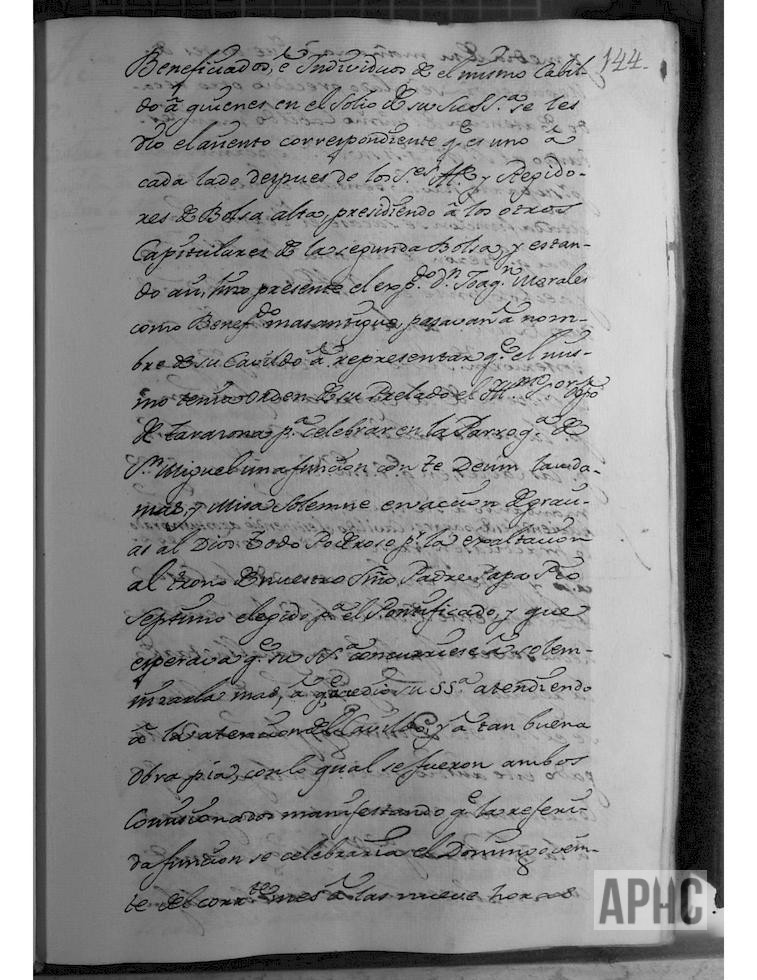 144.
Beneficiados, é Individuos de el mismo Cabil-
do â quienes en el Solio de su Su SS.ª se les
dio el asiento correspondiente q.e es uno a
cada lado despues de los S.res Alc.e y Regido-
res de Bolsa alta, presidiendo â los otros
Capitulares de la segunda Bolsa, y estan-
do asi, hizo presente el exp.do D.n Joaq.n Morales
como Benef.do mas antiguo, pasavan â nom-
bre de su Cavildo â representar q.e el mis-
mo tenia orden de su Prelado el Ill.mo S.or Obpo
de Tarazona p.ª celebrar en la Parroq.ª de
S.n Miguel una funcion con te Deum lauda-
mus, y Misa Solemne en accion de graci-
as al Dios Todo Poderoso p.r la exaltacion
al trono de nuestro Smo Padre Papa Pio
Septimo elegido p.ª el Pontificado, y que
esperava q.e su SS.ª concurriese â solem-
nizarla mas, â q.e accedio su SS.ª atendiendo
â la atencion del Cavildo, y â tan buena
obra pia, con lo qual se fueron ambos
Comisionados manifestando q.e la referi-
da funcion se celebraria el Domingo vein-
te del corr.te mes â las nueve horas
APHC